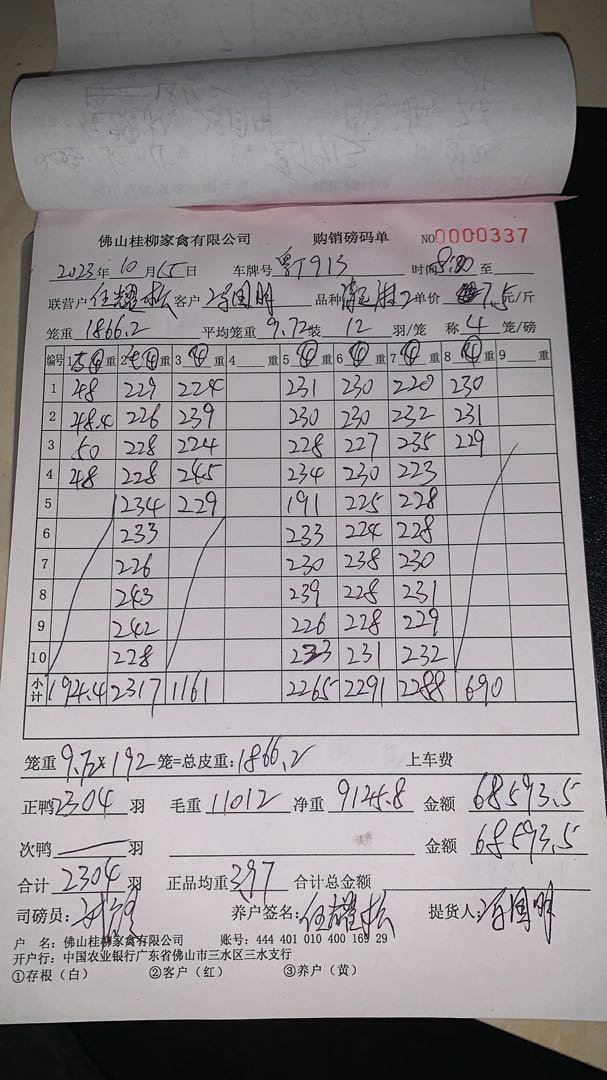 佛山桂柳家禽有限公司 购销磅码单 NO 0000337
2023年 10月15日 车牌号 粤T913 时间 8:20 至
联营户 任耀松 客户 冯国明 品种 单价 7.5元/斤
笼重 1866.2 平均笼重 9.72 装 12 羽/笼 称 4 笼/磅
编号 1 重 2 ④重 3 ④重 4 重 5 ④重 6 ④重 7 ④重 8 ④重 9 重
1 48 229 224 231 230 220 230
2 48.4 226 239 230 230 232 231
3 50 228 224 228 227 235 229
4 48 228 245 234 230 223
5 234 229 191 225 228
6 233 233 224 228
7 226 230 238 230
8 243 239 228 231
9 242 226 228 229
10 228 233 231 232
小计 194.4 2317 1161 2265 2291 2288 690
笼重 9.72×192 笼=总皮重:1866.2 上车费
正鸭 2304 羽 毛重 11012 净重 9145.8 金额 68593.5
次鸭 羽 金额 68593.5
合计 2304 羽 正品均重 3.97 合计总金额
司磅员: 养户签名: 任耀松 提货人: 冯国明
户 名: 佛山桂柳家禽有限公司 账号: 444 401 010 400 169 29
开户行: 中国农业银行广东省佛山市三水区三水支行
①存根(白) ②客户(红) ③养户(黄)